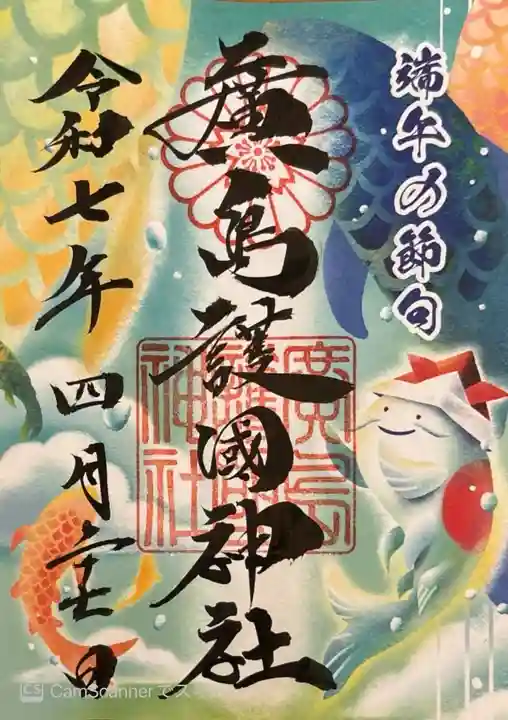 端午の節句
廣島護國神社
廣島
護國
神社
令和七年 四月二十七日
CS CamScanner でス